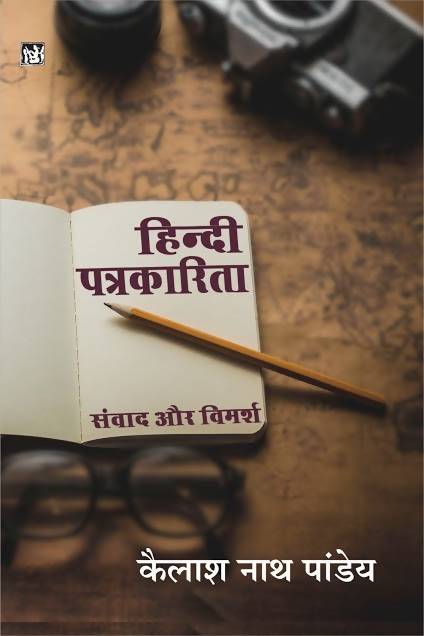 हिन्दी
पत्रकारिता
संवाद और विमर्श
कैलाश नाथ पांडेय